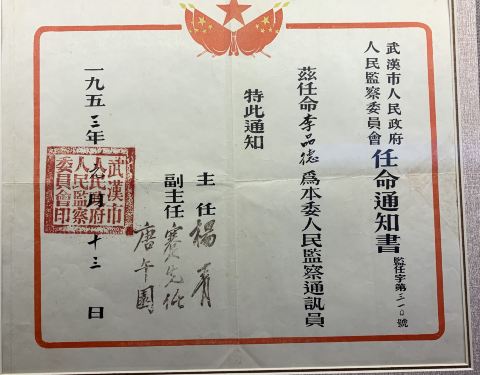 武漢市人民政府
人民監察委員會
任命通知書
監任字第三一〇號
茲任命李品德爲本委人民監察通訊員
特此通知
主任楊青
副主任
唐午園
一九五三年 月十三日
武漢市
人民政府
人民監察
委員會印